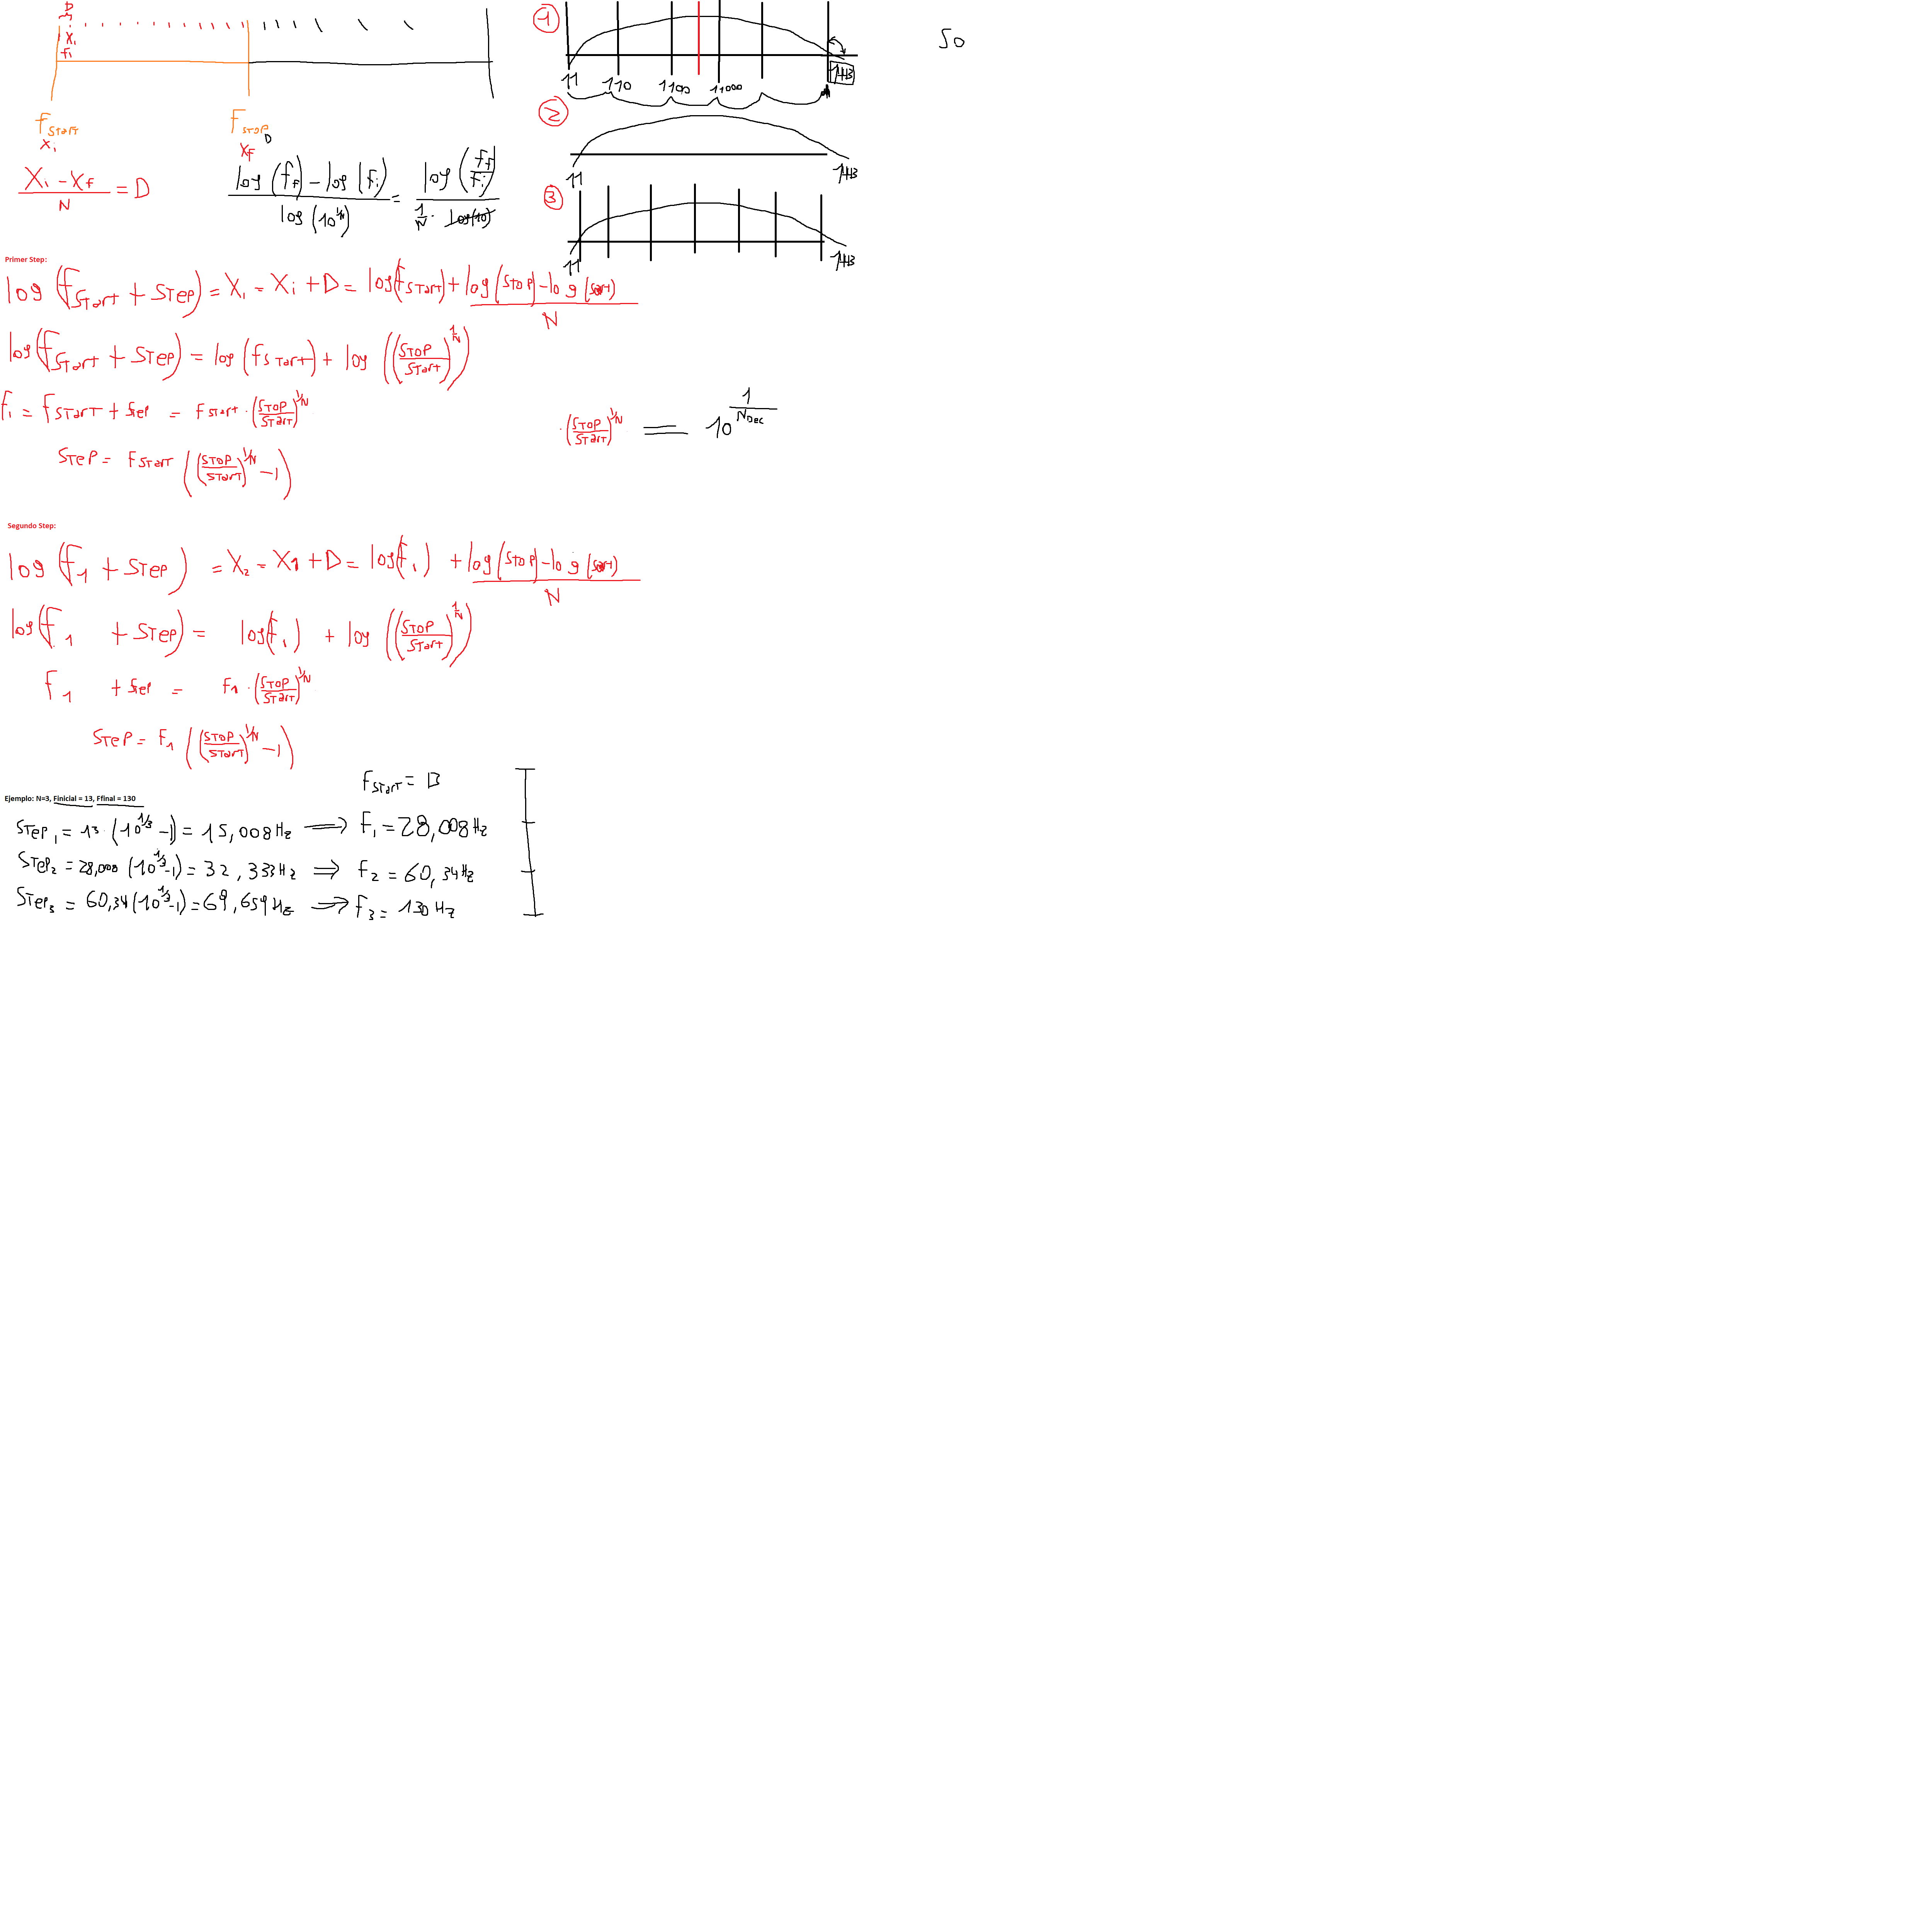 D
X₁
f₁
F START
X₁
F STOP
XF
D
(X₁ - Xf) / N = D
(log(fF) - log(Fi)) / log(10^(1/N)) = log(fF/Fi) / (1/N · log(10))
1
11 110 1100 11000 1MB
2
11 1MB
3
11 1MB
50
Primer Step:
log(F Start + Step) = X₁ = Xi + D = log(F START) + (log(STOP) - log(Start)) / N
log(F Start + STEP) = log(FSTart) + log((STOP/START)^(1/N))
F₁ = FSTART + Step = FSTart · (STOP/START)^(1/N)
STEP = FSTART ((STOP/START)^(1/N) - 1)
· (STOP/START)^(1/N) = 10^(1/NDec)
Segundo Step:
log(F1 + STEP) = X₂ = X1 + D = log(F₁) + (log(STOP) - log(Start)) / N
log(F1 + STEP) = log(F₁) + log((STOP/START)^(1/N))
F1 + Step = F1 · (STOP/START)^(1/N)
STEP = F1 ((STOP/START)^(1/N) - 1)
FSTart = 13
Ejemplo: N=3, Finicial = 13, Ffinal = 130
STEP₁ = 13 · (10^(1/3) - 1) = 15,008Hz ⟹ F₁ = 28,008Hz
STEP₂ = 28,008 (10^(1/3) - 1) = 32,333Hz ⟹ F₂ = 60,34Hz
STEP₃ = 60,34 (10^(1/3) - 1) = 69,659Hz ⟹ F₃ = 130Hz